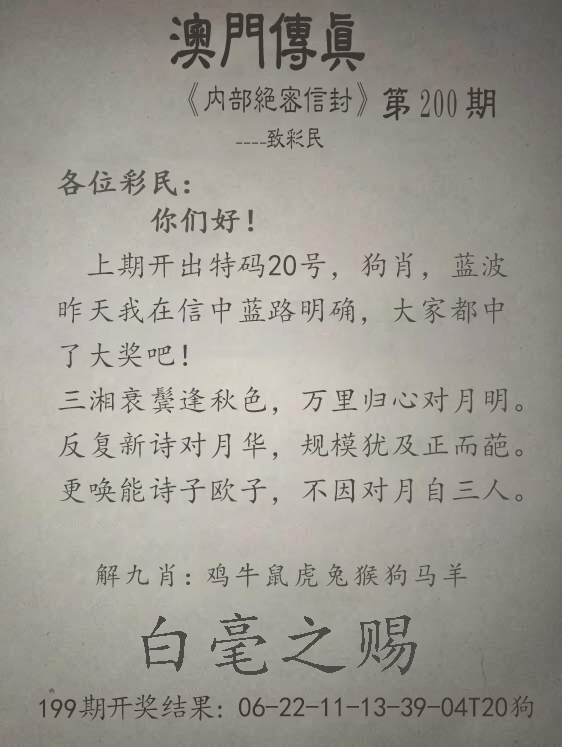 澳門傳眞
《内部絕密信封》第200期
----致彩民
各位彩民：
你们好！
上期开出特码20号，狗肖，蓝波
昨天我在信中蓝路明确，大家都中
了大奖吧！
三湘衰鬓逢秋色，万里归心对月明。
反复新诗对月华，规模犹及正而葩。
更唤能诗子欧子，不因对月自三人。
解九肖：鸡牛鼠虎兔猴狗马羊
白毫之赐
199期开奖结果：06-22-11-13-39-04T20狗